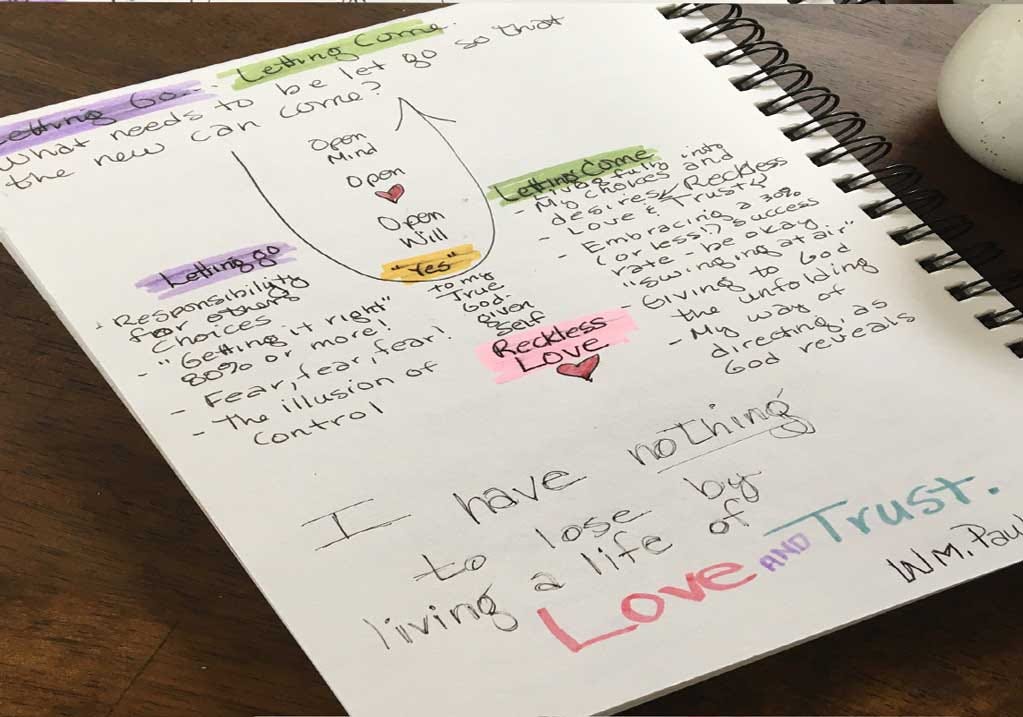 Letting Go... Letting Come.
What needs to be let go so that
the new can come?
Open
Mind
Open
Open
Will
"Yes"
to my
True
God
given
self
Reckless
Love
Letting go
Responsibility
for others
Choices
- "Getting it right"
80% or more!
- Fear, fear, fear!
- The illusion of
control
Letting Come
- Living fully into
My choices and
desires
- Reckless
Love & Trust
- Embracing a 30%
(or less!) success
rate - be okay
"swinging at air"
- Giving to God
the unfolding
- My way of
directing, as
God reveals
I have nothing
to lose by
living a life of
Love AND Trust.
WM. Paul